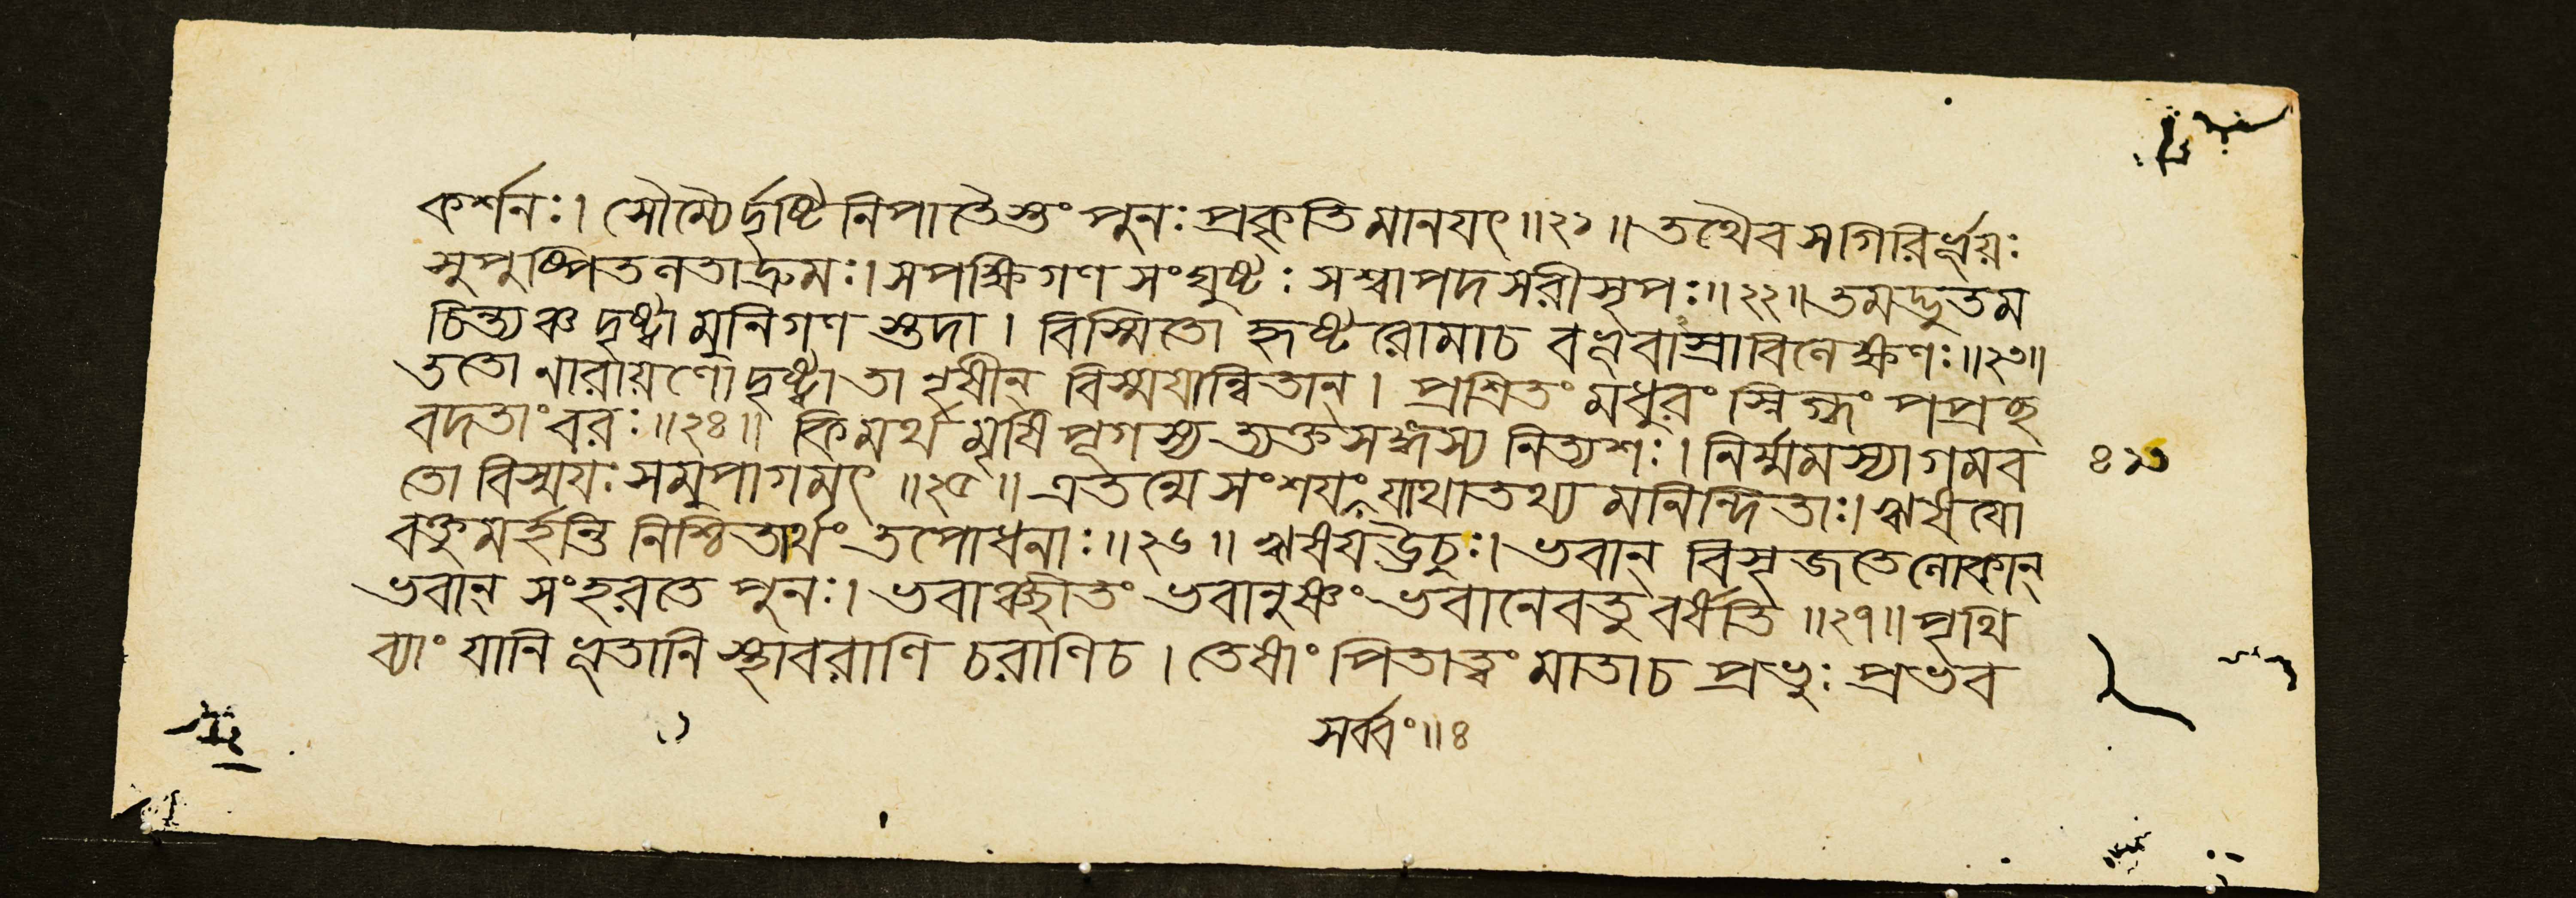 কর্শনঃ। সৌম্যৈর্দৃষ্টি নিপাতৈস্তং পুনঃ প্রকৃতি মানযৎ ॥২১॥ তথৈব স গিরির্ভূয়ঃ
সুপুষ্পিত লতাদ্রুমঃ। সপক্ষিগণ সংঘুষ্টঃ সশ্বাপদ সরীসৃপঃ॥২২॥ তমদ্ভুতম
চিন্ত্যঞ্চ দৃষ্ট্বা মুনিগণ স্তদা। বিস্মিতো হৃষ্ট রোমাচ বভূবাস্রাবিলেক্ষণঃ॥২৩॥
ততো নারায়ণো দৃষ্ট্বা তা নৃষীন্ বিস্ময়ান্বিতান্। প্রশ্রিতং মধুরং স্নিগ্ধং পপ্রছ
বদতাং বরঃ॥২৪॥ কিমর্থ মৃষি পূগস্য ত্যক্তসঙ্গস্য নিত্যশঃ। নির্ম্মমস্যাগমব
তো বিস্ময়ঃ সমুপাগমৎ ॥২৫॥ এতন্মে সংশয়ং যাথাতথ্য মনিন্দিতাঃ। ঋষয়ো ৪৯
বক্তুমর্হন্তি নিশ্চিতার্থং তপোধনাঃ॥২৬॥ ঋষয় ঊচুঃ। ভবান্ বিসৃজতে লোকান্
ভবান্ সংহরতে পুনঃ। ভবাঞ্ছীতং ভবানুষ্ণং ভবানেবতু বর্ষতি ॥২৭॥ পৃথি
ব্যাং যানি ভূতানি স্থাবরাণি চরাণিচ। তেষাং পিতাত্বং মাতাচ প্রভুঃ প্রভব
সর্ব্বং॥৪